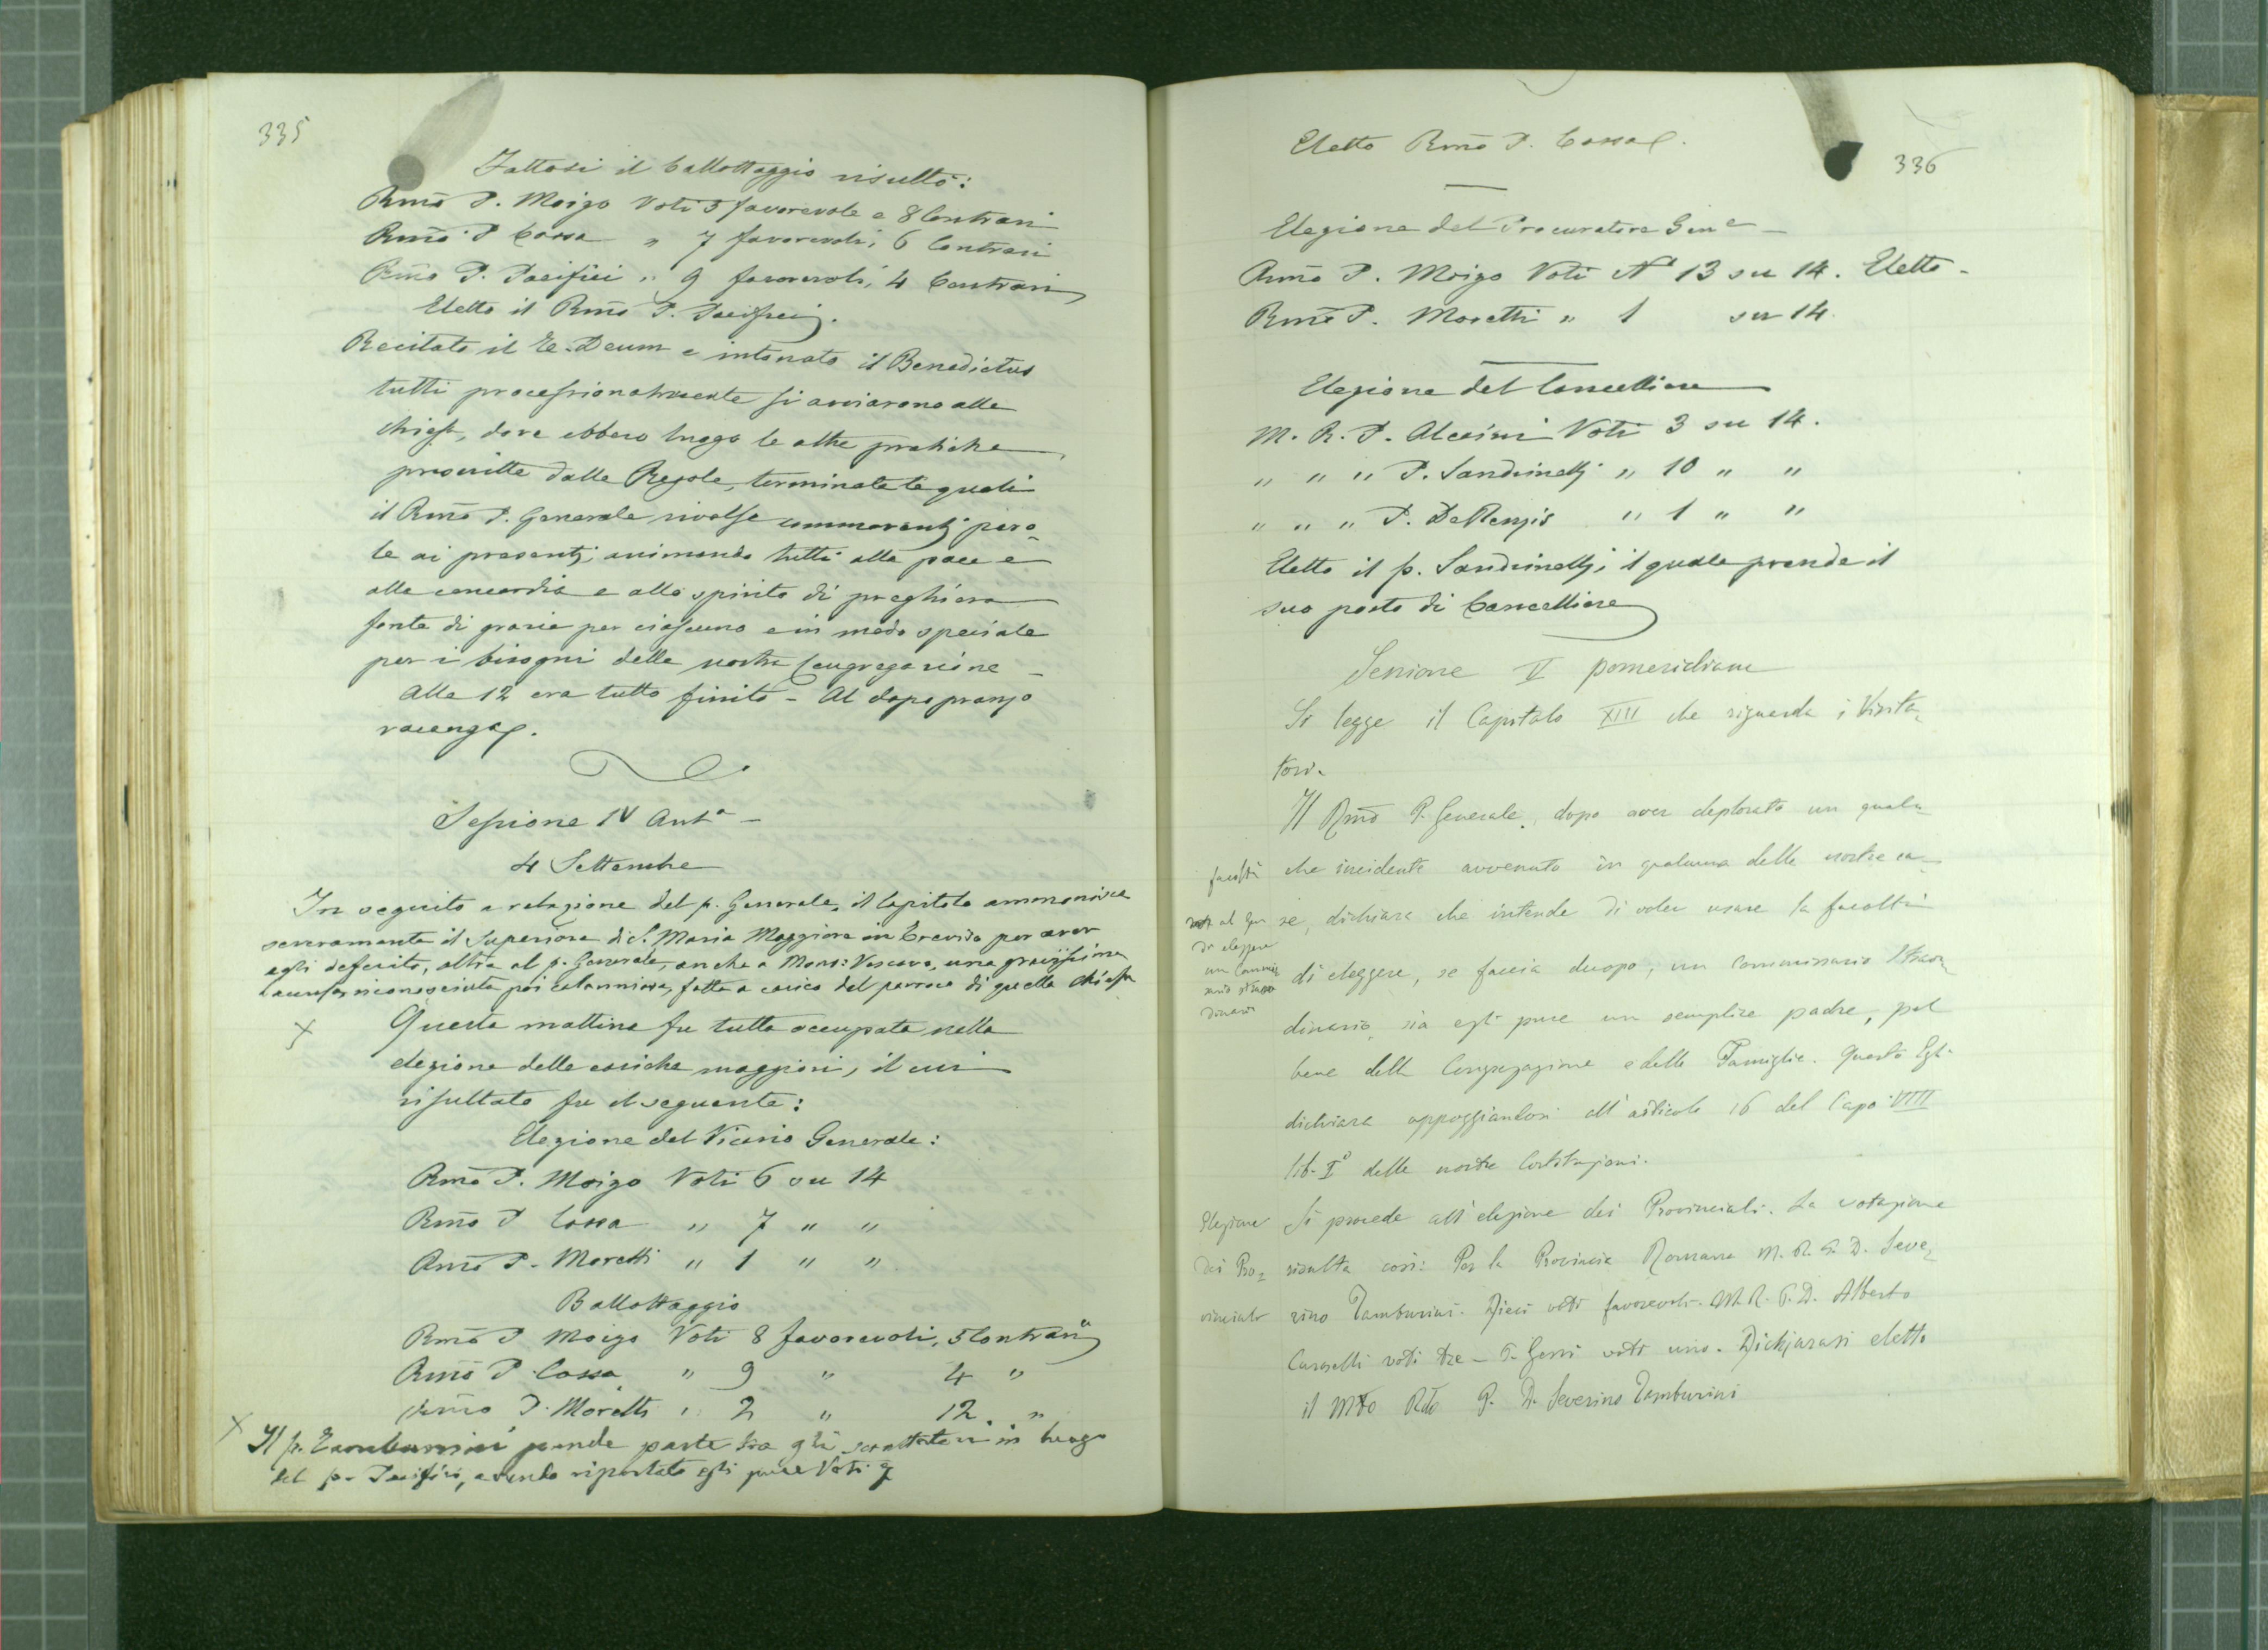 335
Fattosi il ballottaggio risultò:
Rmo P. Moizo Voti 5 favorevole e 8 Contrari
Rmo P Cossa " 7 favorevoli, 6 Contrari
Rmo P. Pacifici " 9 favorevoli, 4 Contrari
Eletto il Rmo P. Pacifici.
Recitato il Te-Deum e intonato il Benedictus
tutti processionalmente si avviarono alla
chiesa, dove ebbero luogo le altre pratiche
prescritte dalle Regole, terminate le quali
il Rmo P. Generale rivolse commoventi paro-
le ai presenti, animando tutti alla pace e
alla concordia e allo spirito di preghiera
fonte di grazie per ciascuno e in modo speciale
per i bisogni della nostra Congregazione -
Alle 12 era tutto finito - Al dopo pranzo
vacanza.
Sessione IV Anta -
4 Settembre
In seguito a relazione del p. Generale, il Capitolo ammonisce
severamente il Superiore di S. Maria Maggiore in Treviso per aver
egli deferito, oltre al p. Generale, anche a Mons: Vescovo, una gravissima
accusa, riconosciuta poi calunniosa, fatta a carico del parroco di quella chiesa
x Questa mattina fu tutta occupata nella
elezione delle cariche maggiori, il cui
risultato fu il seguente:
Elezione del Vicario Generale:
Rmo P. Moizo Voti 6 su 14
Rmo P Cossa " 7 " "
Rmo P. Moretti " 1 " "
Ballottaggio
Rmo P Moizo Voti 8 favorevoli, 5 Contrarii
Rmo P. Cossa " 9 " 4 "
Rmo P. Moretti " 2 " 12 "
x Il p. Tamburrini prende parte tra gli scrutatori in luogo
del p. Pacifici, avendo riportato egli pure Voti 7
Eletto Rmo P. Cossa.
336
Elezione del Procuratore Gene -
Rmo P. Moizo Voti No 13 su 14. Eletto -
Rmo P. Moretti " 1 su 14.
Elezione del Cancelliere
M. R. P. Alcaini Voti 3 su 14.
" " " P. Sandrinelli " 10 " "
" " " P. DeRenzis " 1 " "
Eletto il p. Sandrinelli, il quale prende il
suo posto di Cancelliere
Sessione V pomeridiana
Si legge il Capitolo XIII che riguarda i Visita-
tori.
Il Rmo P. Generale, dopo aver deplorato un qual-
che incidente avvenuto in qualcuna delle nostre ca-
se, dichiara che intende di voler usare la facoltà
di eleggere, se faccia duopo, un Commissario Straor-
dinario, sia egli pure un semplice padre, pel
bene della Congregazione e delle Famiglie. Questo Egli
dichiara appoggiandosi all'articolo 16 del Capo VIII
lib. Io delle nostre Costituzioni.
facoltà
al Gen
di eleggere
un Commis-
sario straor
dinario
Elezione
dei Pro-
vinciali
Si procede all'elezione dei Provinciali. La votazione
risulta così: Per la Provincia Romana M. R. P. D. Seve-
rino Tamburini. Dieci voti favorevoli. M. R. P. D. Alberto
Caroselli voti tre - P. Gessi voti uno. Dichiarasi eletto
il Mto Rdo P. D. Severino Tamburini